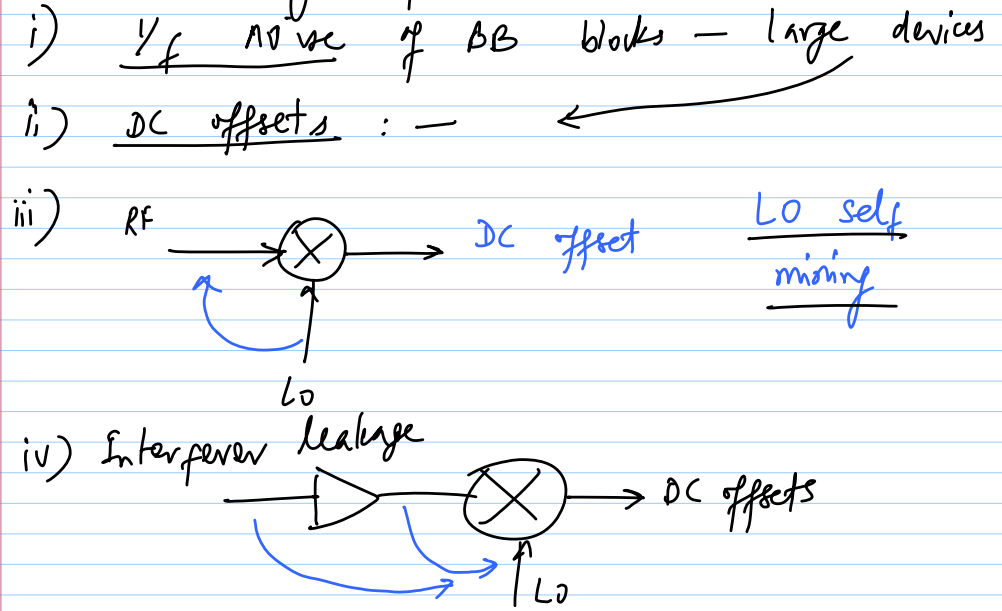 i) 1/f noise of BB blocks — large devices
ii) DC offsets : —
iii) RF
DC offset
LO self
mixing
LO
iv) Interferer leakage
DC offsets
LO